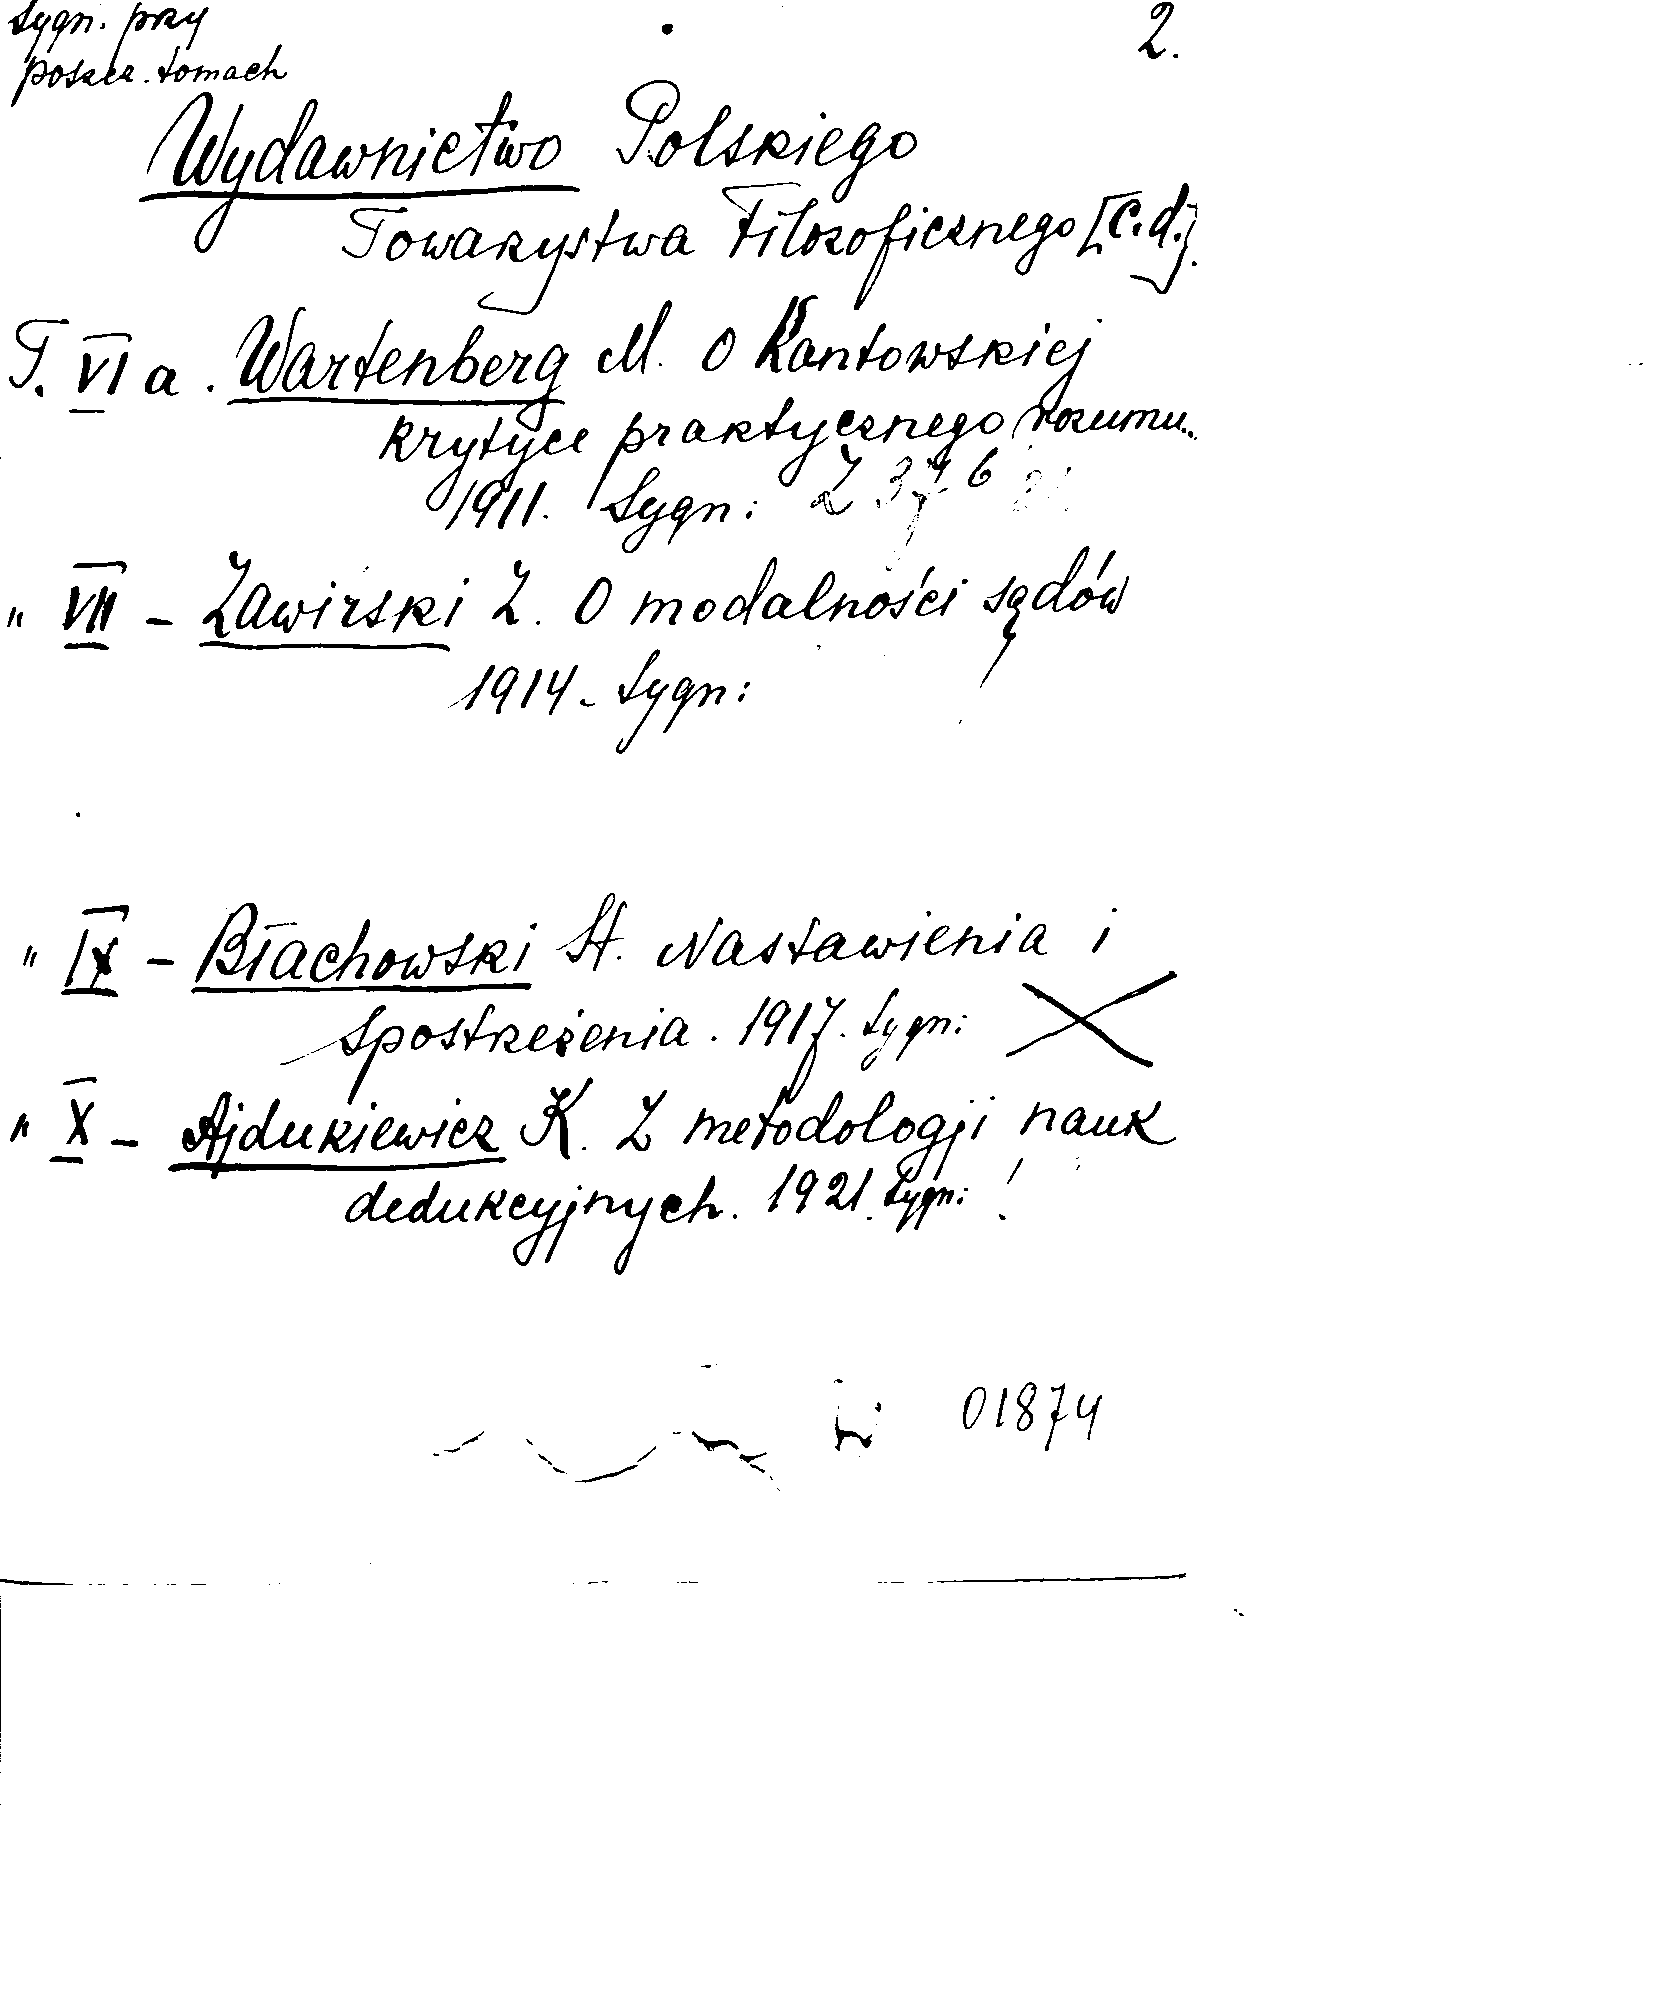 Sygn. przy
2.
poszcz. tomach
Wydawnictwo Polskiego
Towarzystwa Filozoficznego [c.d.].
T. VI a. Wartenberg M. O Kantowskiej
krytyce praktycznego rozumu.
1911. Sygn:
" VII - Zawirski Z. O modalności sądów
1914. Sygn:
" IX - Błachowski St. Nastawienia i
spostrzeżenia. 1917. Sygn:
" X - Ajdukiewicz K. Z metodologji nauk
dedukcyjnych. 1921. Sygn:
01874